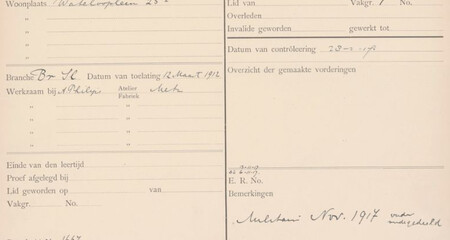 Woonplaats Waterlooplein 28
"
"
"
Branche Br. Sl. Datum van toelating 12 Maart 1912
Werkzaam bij A Philips Atelier Fabriek
"
"
"
Einde van den leertijd
Proef afgelegd bij
Lid geworden op van
Vakgr. No.
Lid van Vakgr. No.
Overleden
Invalide geworden gewerkt tot
Datum van contrôleering
Overzicht der gemaakte vorderingen
E. R. No.
Bemerkingen
Nov. 1917